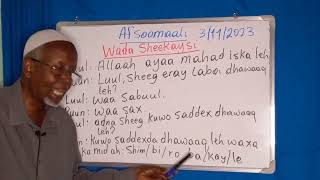 Afsoomaali 3/11/2023
Wada Sheekaysi
uul: Allaah ayaa mahad Iska leh
uun: Luul, Sheeg eray labo dhawaaq
leh?
uul: Waa Sabuul.
uun: Waa sax.
ul: adna Sheeg kuwo saddex dhawaaq
leh?
n: Kuwo saddexda dhawaaq leh waxa
ka mid ah: Shim/bi/ro, ba/kay/le